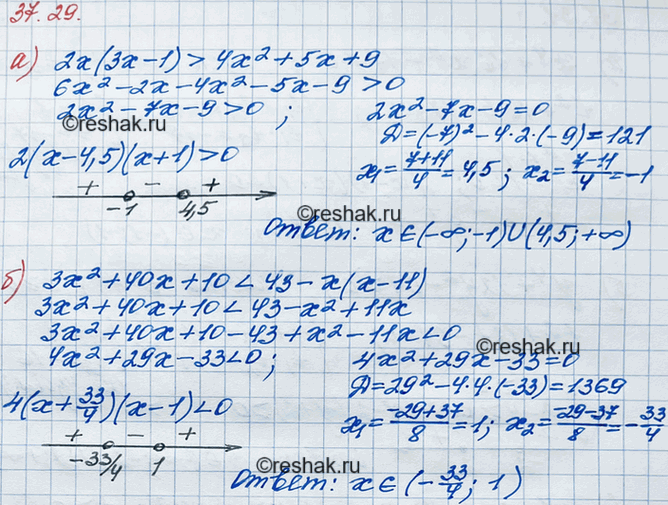 37.29.
а) 2x(3x-1) > 4x²+5x+9
6x²-2x-4x²-5x-9 > 0
2x²-7x-9 > 0 ; 2x²-7x-9 = 0
©reshak.ru
Д=(-7)²-4·2·(-9)=121
2(x-4,5)(x+1) > 0
x₁=(7+11)/4=4,5 ; x₂=(7-11)/4=-1
©reshak.ru
+ - +
-1 4,5
©reshak.ru
Ответ: x∈(-∞;-1)∪(4,5;+∞)
б) 3x²+40x+10 < 43-x(x-11)
3x²+40x+10 < 43-x²+11x
3x²+40x+10-43+x²-11x < 0
©reshak.ru
4x²+29x-33 < 0 ; 4x²+29x-33=0
©reshak.ru
Д=29²-4·4·(-33)=1369
4(x+33/4)(x-1) < 0
x₁=(-29+37)/8=1; x₂=(-29-37)/8=-33/4
+ - +
-33/4 1
©reshak.ru
Ответ: x∈(-33/4; 1)